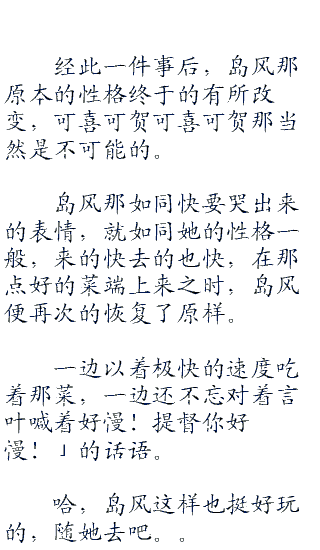 经此一件事后，岛风那
原本的性格终于的有所改
变，可喜可贺可喜可贺那当
然是不可能的。
岛风那如同快要哭出来
的表情，就如同她的性格一
般，来的快去的也快，在那
点好的菜端上来之时，岛风
便再次的恢复了原样。
一边以着极快的速度吃
着那菜，一边还不忘对着言
叶喊着好慢！提督你好
慢！」的话语。
哈，岛风这样也挺好玩
的，随她去吧。。